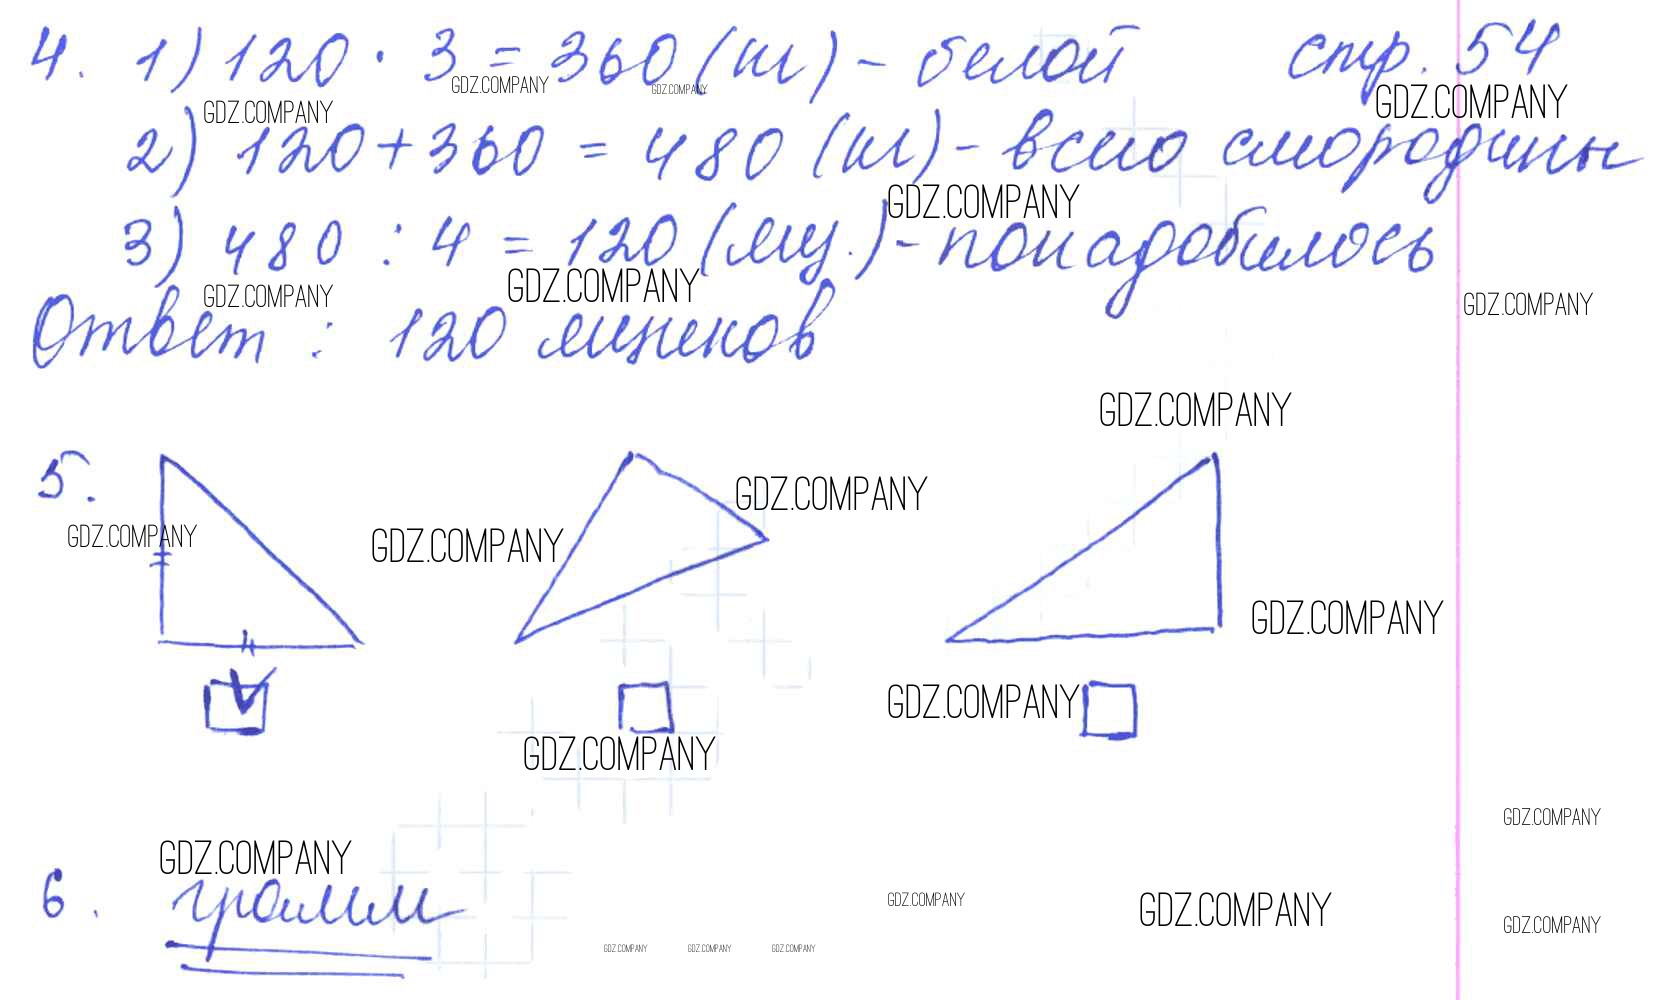 4. 1) 120 · 3 = 360 (ш) - белой стр. 54
GDZ.COMPANY GDZ.COMPANY GDZ.COMPANY
GDZ.COMPANY
2) 120 + 360 = 480 (ш) - всего смородины
GDZ.COMPANY
3) 480 : 4 = 120 (ящ.) - понадобилось
GDZ.COMPANY GDZ.COMPANY GDZ.COMPANY
Ответ: 120 ящиков
GDZ.COMPANY
5.
GDZ.COMPANY
GDZ.COMPANY GDZ.COMPANY
GDZ.COMPANY
GDZ.COMPANY
GDZ.COMPANY
GDZ.COMPANY
GDZ.COMPANY
6. грамм
GDZ.COMPANY GDZ.COMPANY GDZ.COMPANY
GDZ.COMPANY GDZ.COMPANY GDZ.COMPANY